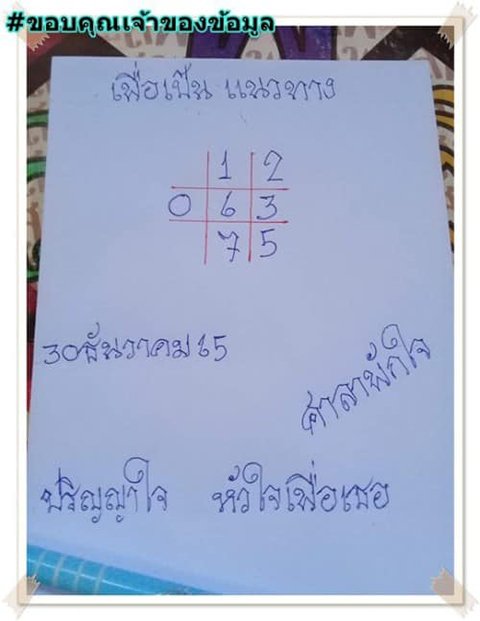 #ขอบคุณเจ้าของข้อมูล
เพื่อเป็น แนวทาง
1 2
0 6 3
7 5
30 ธันวาคม 65
ศาลาพักใจ
ปริญญาใจ หัวใจเพื่อเธอ